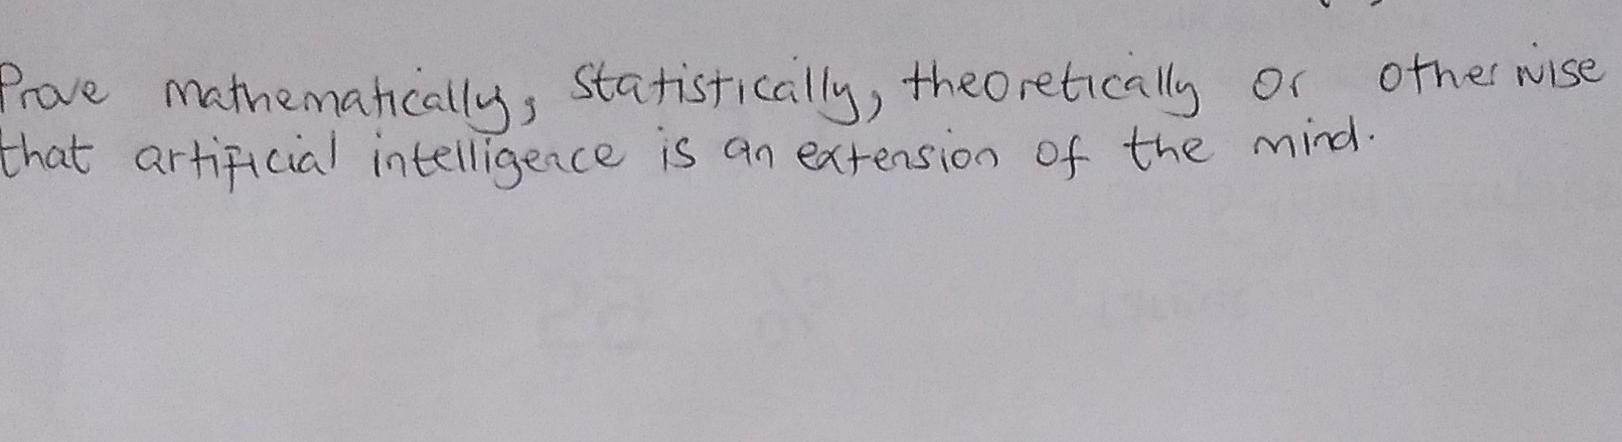 Prove mathematically, statistically, theoretically or otherwise
that artificial intelligence is an extension of the mind.